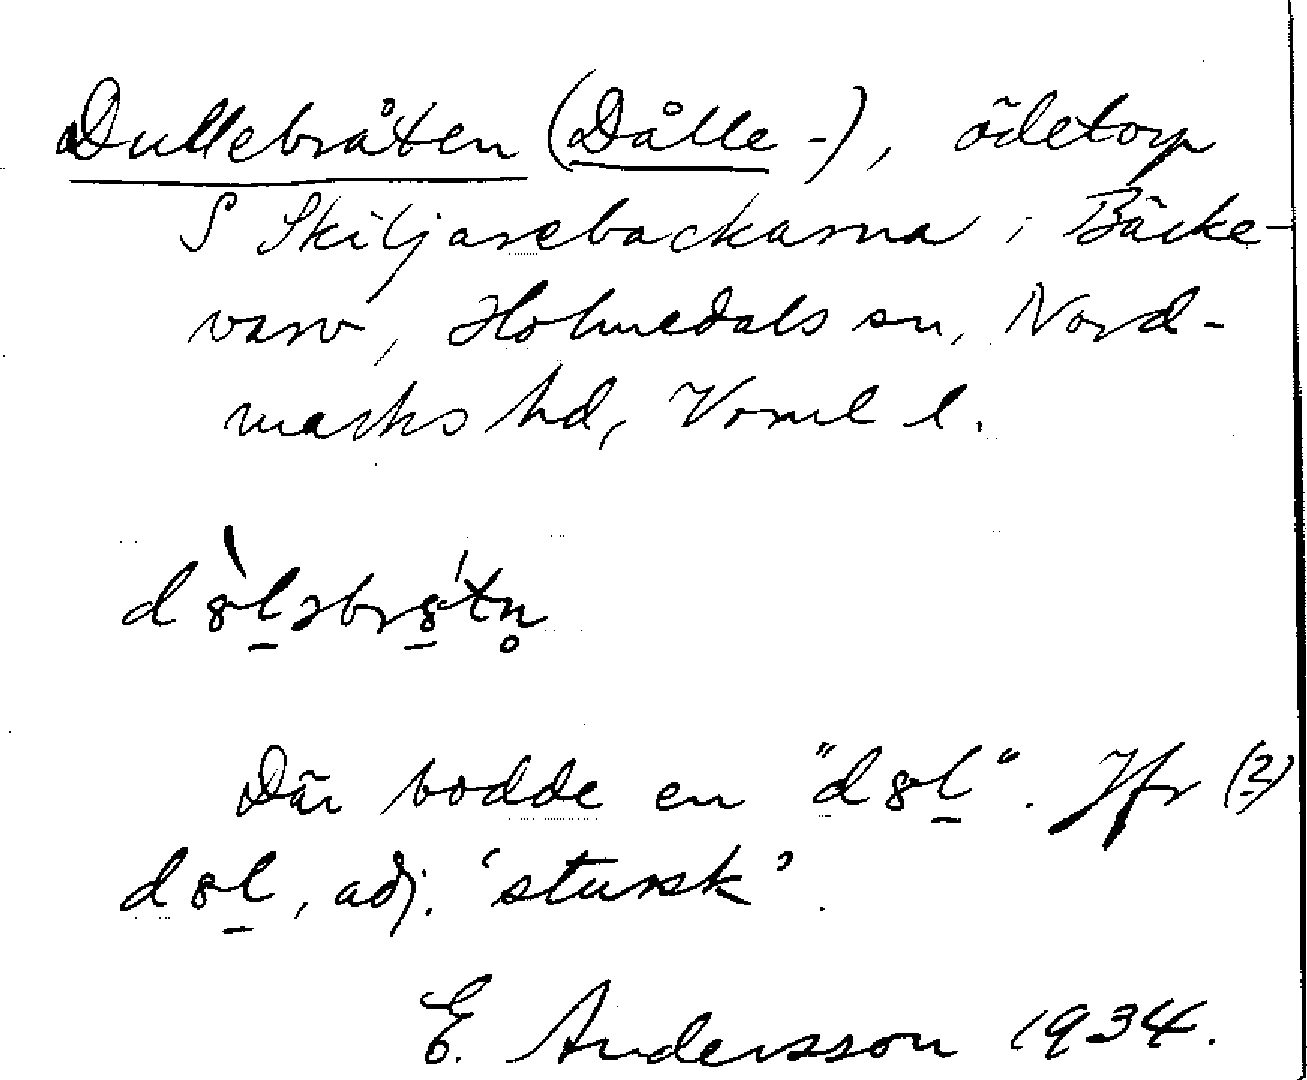 Dullebråten (Dålle-), ödetorp
S Skiljarebackarna i Bäcke-
varv, Holmedals sn, Nord-
marks hd, Verml l.
Där bodde en "dȣl". Jfr (?)
dȣl, adj. 'stursk'.
E. Andersson 1934.